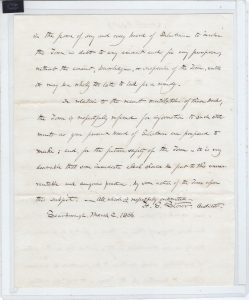 in the power of any and every board of Selectmen to involve
the Town in debt to any amount and for any purpose,
without the consent, knowledge, or suspicion of the Town, until
it may be wholly too late to look for a remedy.
In relation to the recent
the Town is respectfully referred for information to such state
ments as your present Board of Selectmen are prepared to
make; and for the future safety of the Town it is very
desirable that some immediate check should be put to this unwar
rantable and dangerous practice, by some action of the Town upon
this subject. All which is respectfully submitted
Auditor
March 2, 1856